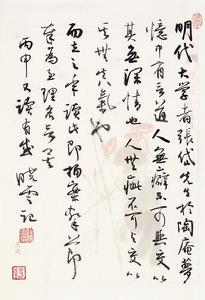 明代大学者張岱先生於陶庵夢
憶中有云道人無癖不可與交以
其無深情也人無疵不可與交以
其無真氣也
而立之年讀此即拍案
奉為至理名言
丙申又讀有感 曉雲記